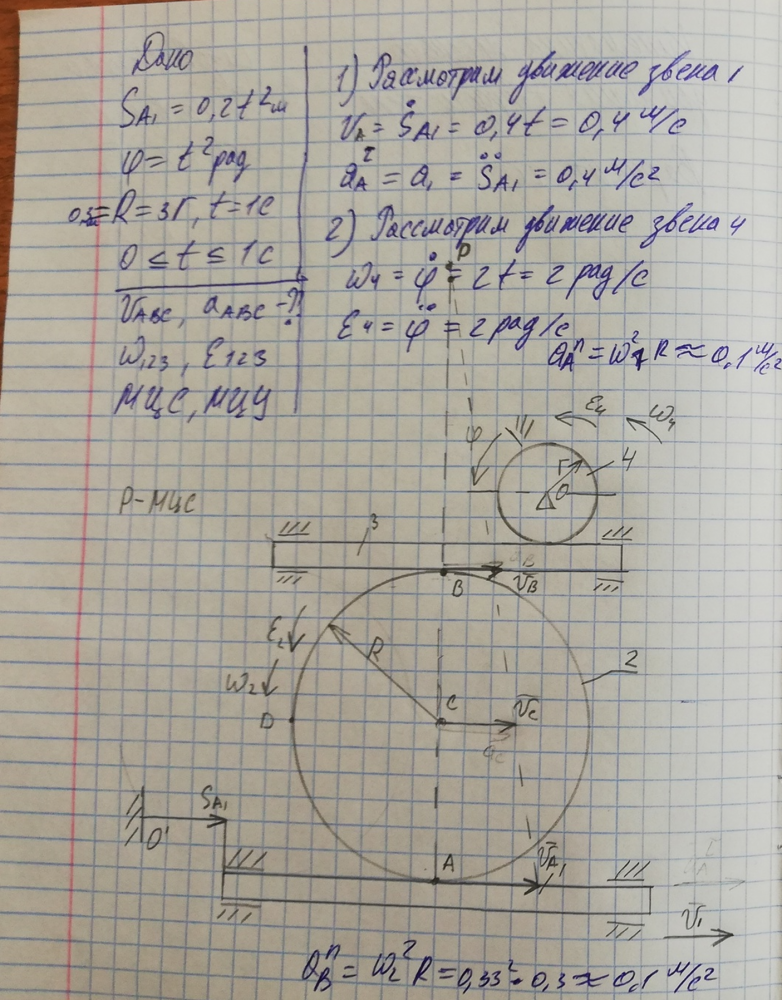 Дано
S_A1 = 0,2t² м
φ = t² рад
0,3 = R = 3r, t = 1с
0 ≤ t ≤ 1с
V_ABC, a_ABC - ?
ω₁₂₃, ε₁₂₃
МЦС, МЦУ
1) Рассмотрим движение звена 1
V_A = Ṡ_A1 = 0,4t = 0,4 м/с
a_A^τ = a₁ = S̈_A1 = 0,4 м/с²
2) Рассмотрим движение звена 4
P
ω₄ = φ̇ = 2t = 2 рад/с
ε₄ = φ̈ = 2 рад/с
a_A^n = ω²R ≈ 0,1 м/с²
φ
ε₄
ω₄
r
O
4
P-МЦС
3
B
V_B
ε₂
ω₂
R
D
C
V_C
a_C
2
S_A1
O'
A
V_A1
V₁
a_B^n = ω₂²R = 0,33²·0,3 ≈ 0,1 м/с²